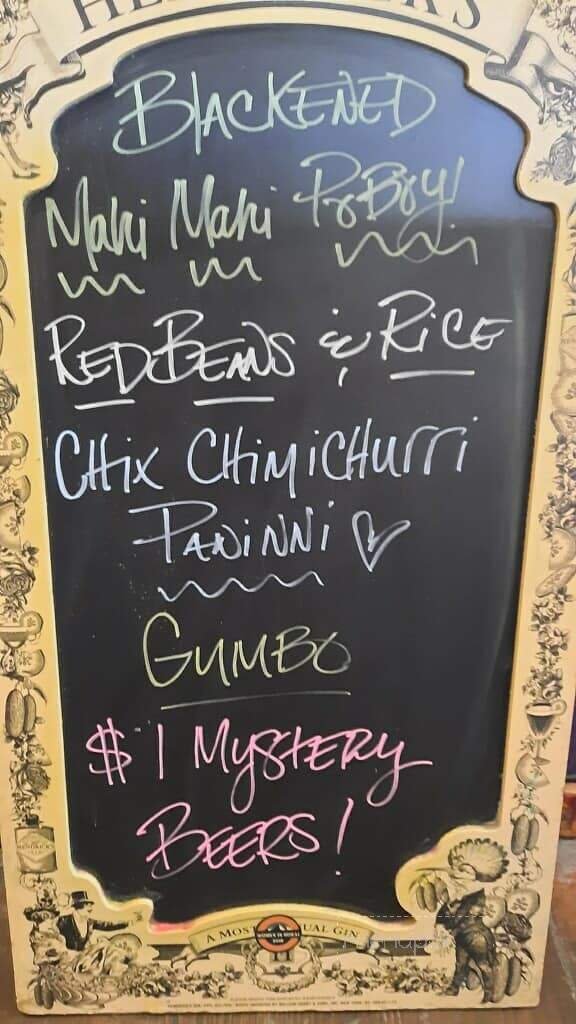 BLACKENED
Mahi Mahi PoBoy!
RED BEANS & RICE
CHix CHiMiCHurri
PANiNNi
GUMBO
$1 MySTERy
BEERS!
A MOST UNUSUAL GIN